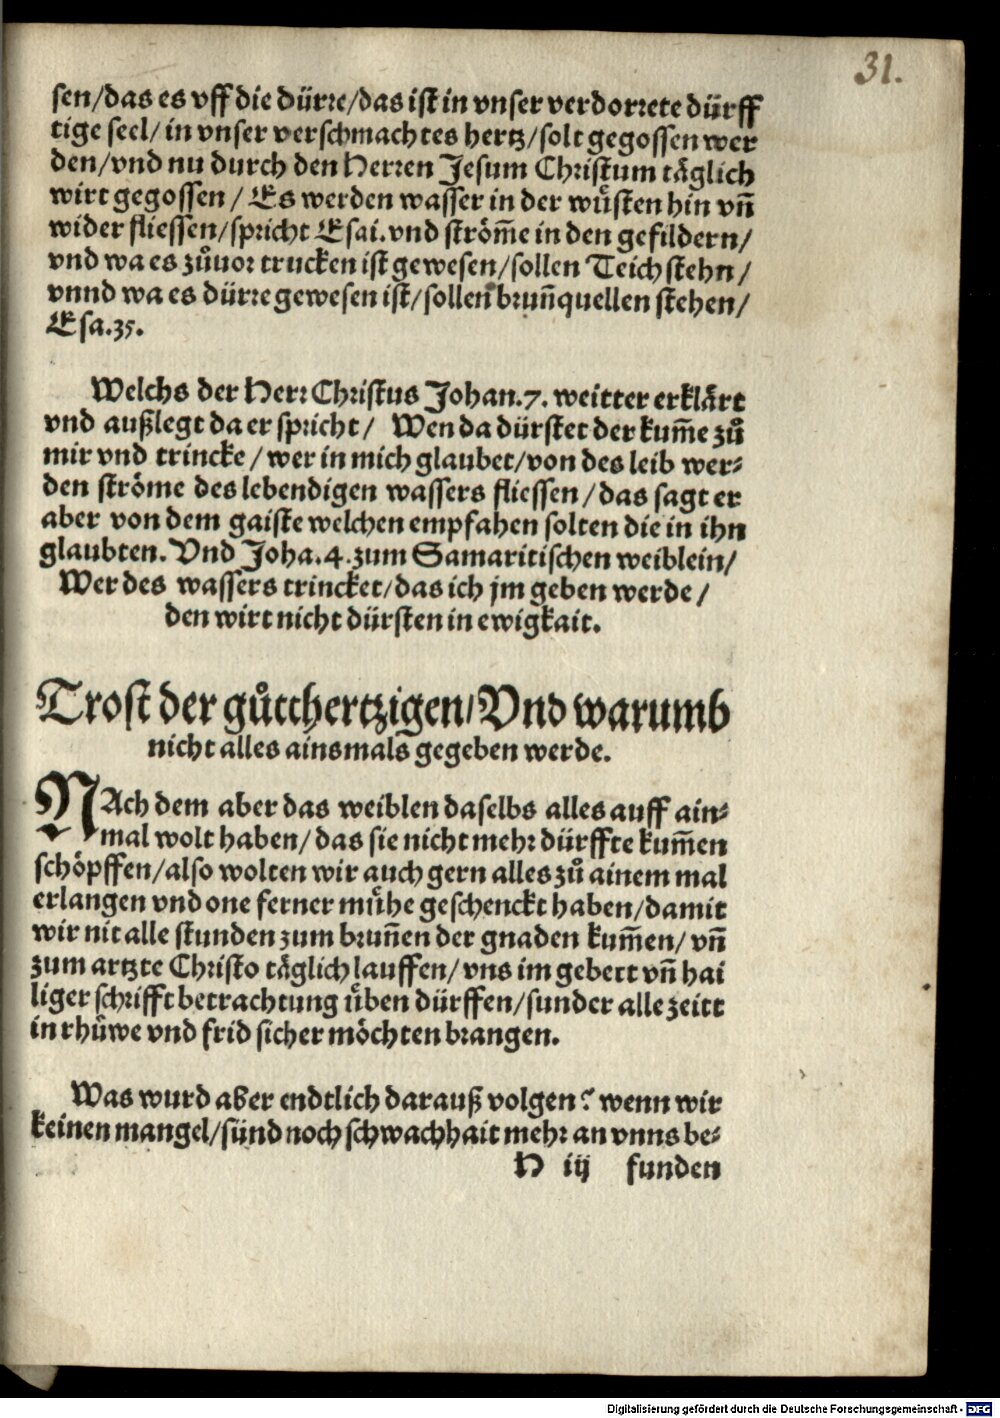 31.
sen/das es vff die dürre/das ist in vnser verdorrete dürff
tige seel/ in vnser verschmachtes hertz/solt gegossen wer
den/vnd nu durch den Herren Jesum Christum täglich
wirt gegossen / Es werden wasser in der wůsten hin vñ
wider fliessen/spricht Esai.vnd ström̃e in den gefildern/
vnd wa es zůuor trucken ist gewesen/sollen Teich stehn/
vnnd wa es dürre gewesen ist/sollen brun̄quellen stehen/
Esa.35.
Welchs der Herr Christus Johan.7. weitter erklärt
vnd außlegt da er spricht/ Wen da dürstet der kum̃e zů
mir vnd trincke /wer in mich glaubet/von des leib wer-
den ströme des lebendigen wassers fliessen/das sagt er
aber von dem gaiste welchen empfahen solten die in ihn
glaubten. Vnd Joha.4.zum Samaritischen weiblein/
Wer des wassers trincket/das ich jm geben werde/
den wirt nicht dürsten in ewigkait.
Trost der gůtthertzigen/Vnd warumb
nicht alles ainsmals gegeben werde.
NAch dem aber das weiblen daselbs alles auff ain-
mal wolt haben/das sie nicht mehr dürffte kum̃en
schöpffen/also wolten wir auch gern alles zů ainem mal
erlangen vnd one ferner můhe geschenckt haben/damit
wir nit alle stunden zum brun̄en der gnaden kum̃en/ vñ
zum artzte Christo täglich lauffen/vns im gebett vñ hai
liger schrifft betrachtung ůben dürffen/sunder alle zeitt
in rhůwe vnd frid sicher möchten brangen.
Was wurd aber endtlich darauß volgen? wenn wir
keinen mangel/sünd noch schwachhait mehr an vnns be-
H iij funden
Digitalisierung gefördert durch die Deutsche Forschungsgemeinschaft - DFG